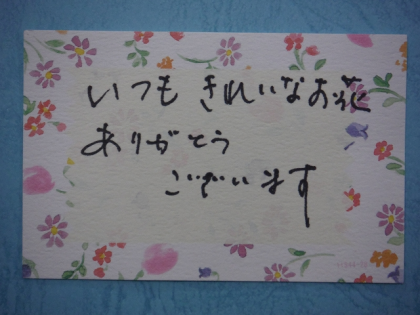 いつも きれいなお花
ありがとう
ございます